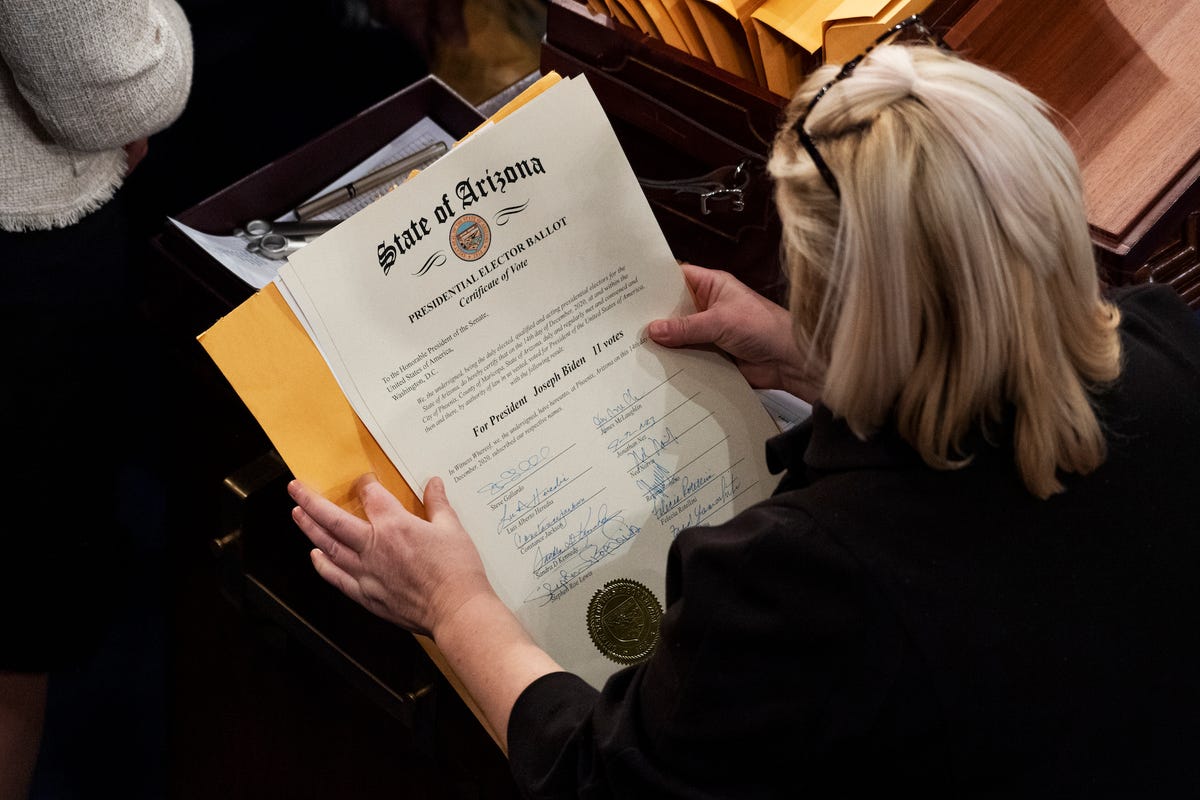 State of Arizona
PRESIDENTIAL ELECTOR BALLOT
Certificate of Vote
To the Honorable President of the Senate,
United States of America,
Washington, D.C.
We, the undersigned, being the duly elected, qualified and acting presidential electors for the
State of Arizona, do hereby certify that on the 14th day of December, 2020, at and within the
City of Phoenix, County of Maricopa, State of Arizona, duly and regularly met and convened and
then and there, by authority of law in us vested, voted for President of the United States of America,
with the following result:
For President Joseph Biden 11 votes
In Witness Whereof, we, the undersigned, have hereunto, at Phoenix, Arizona on this 14th
December, 2020, subscribed our respective names.
Steve Gallardo
Luis Alberto Heredia
Constance Jackson
Sandra D Kennedy
Stephen Roe Lewis
James McLaughlin
Jonathan Nez
Ned Norris
Felecia Rotellini